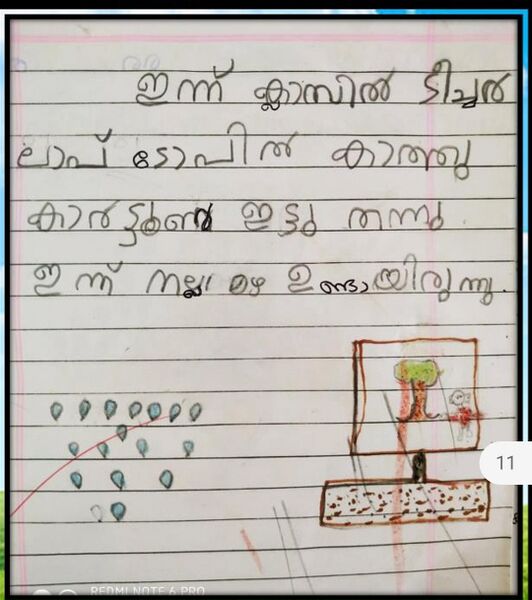 ഇന്ന് ക്ലാസിൽ ടീച്ചർ
ലാപ് ടോപിൽ കാത്തു
കാർട്ടൂൺ ഇട്ടു തന്നു.
ഇന്ന് നല്ല മഴ ഉണ്ടായിരുന്നു.
11
REDMI NOTE 6 PRO